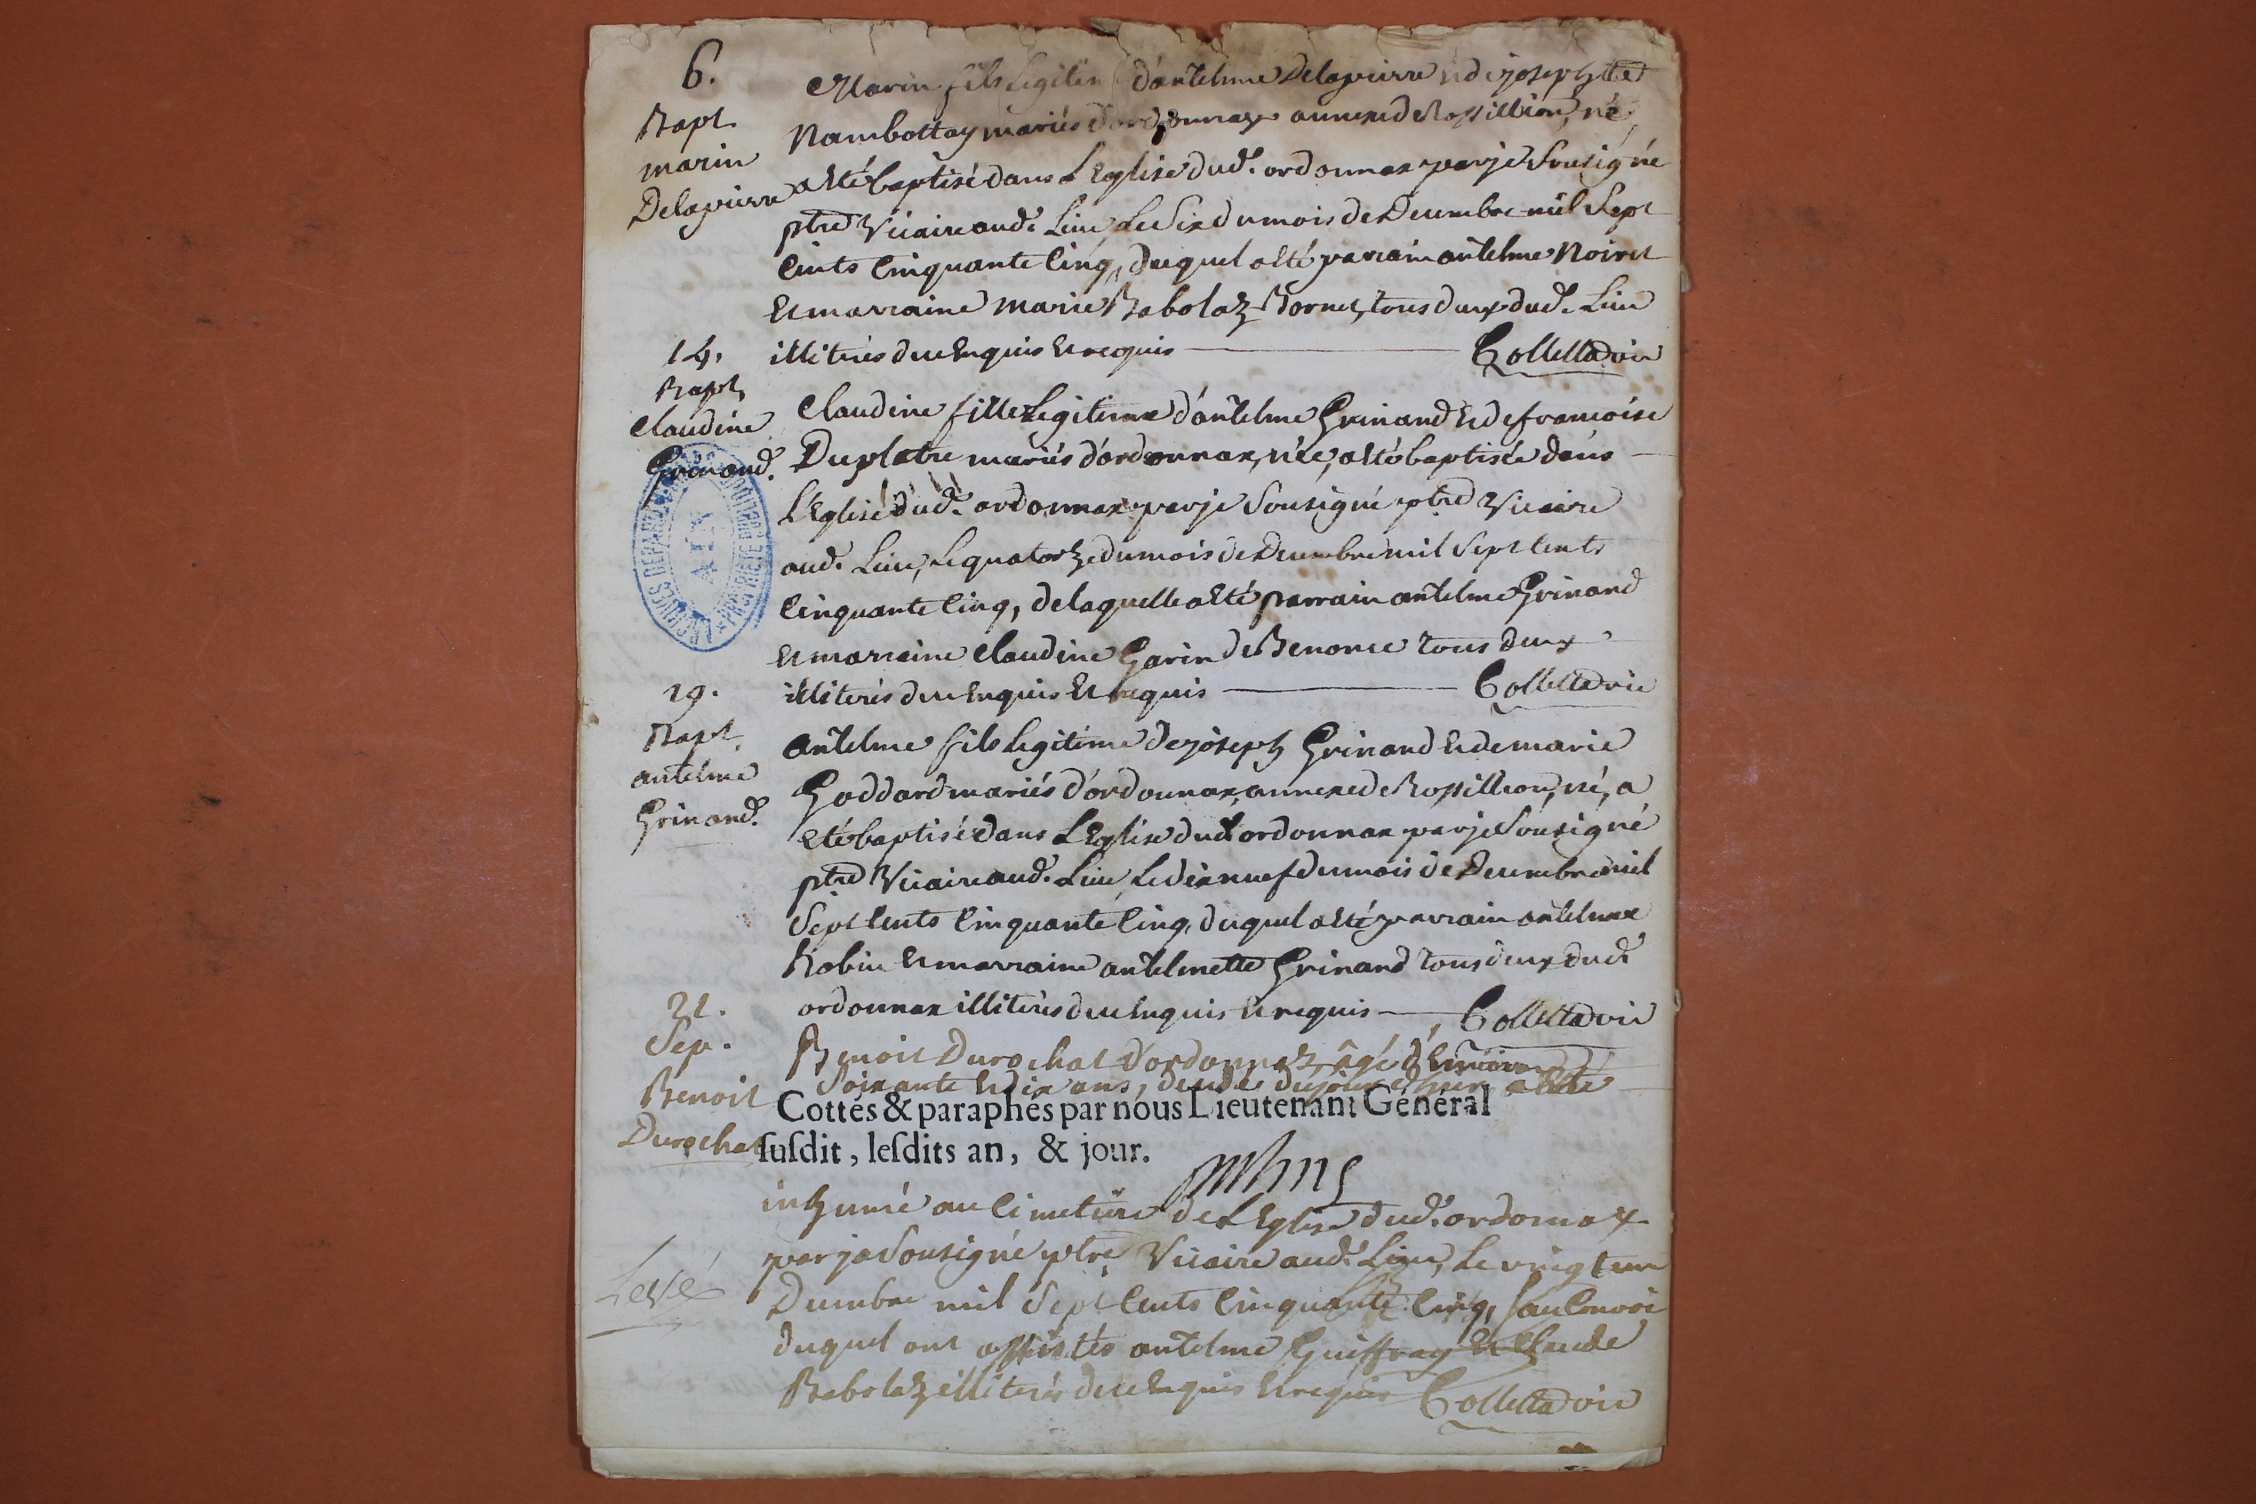 6.
Bapt.
marin
Delapierre
Marin fils Legitim d'antelme Delapierre et de josephte
Nambottay mariés d'ordonnax annexe de Rossillion, né,
a eté baptisé dans L'Eglise dud. ordonnax par je Sousigné
ptre Vicaire aud. Lieu, Le Six du mois de Decembre mil Sept
Cents Cinquante Cinq, duquel a eté parrain antelme Noiret
Et marraine marie Babolaz Bornet, tous deux dud. Lieu
illiterés de ce Enquis Et requis Colletta vic
14.
Bapt.
Claudine
Grinand.
Claudine fille Legitime d'antelme Grinand Et de francoise
Duplatre mariés d'ordonnax, née, a eté baptisée dans
L'Eglise dud. ordonnax par je Sousigné ptre Vicaire
aud. Lieu, Le quatorze du mois de Decembre mil Sept Cents
Cinquante Cinq, de laquelle a eté parrain antelme Grinand
Et marraine Claudine Garin de Benonce tous deux
illiterés de ce Enquis Et requis Colletta vic
19.
Bapt.
antelme
Grinand.
antelme fils Legitime de joseph Grinand Et de marie
Goddard mariés d'ordonnax, annexe de Rossillion, né, a
eté baptisé dans L'Eglise dud ordonnax par je Sousigné
ptre Vicaire aud. Lieu, Le dix neuf du mois de Decembre mil
Sept Cents Cinquante Cinq, duquel a eté parrain antelme
Robin Et marraine antelmette Grinand tous deux dud.
ordonnax illiterés de ce Enquis Et requis Colletta vic
21.
Sep.
Benoit
Durochat
Benoit Durochat d'ordonnax, âgé d'Environ
Soixante Et dix ans, decedé du jour d'hier a eté
Cottés & paraphés par nous Lieutenant Général
ſuſdit, leſdits an, & jour.
inhumé au Cimetiere de L'Eglise dud. ordonnax
par je Sousigné ptre Vicaire aud. Lieu, Le vingt un
Decembre mil Sept Cents Cinquante Cinq, au Convoi
duquel ont assistés antelme Guiffray Et Claude
Babolaz illiterés de ce Enquis Et requis Colletta vic
Levé
ARCHIVES DEPARTEMENTALES
PROPRIETE PUBLIQUE
AIN